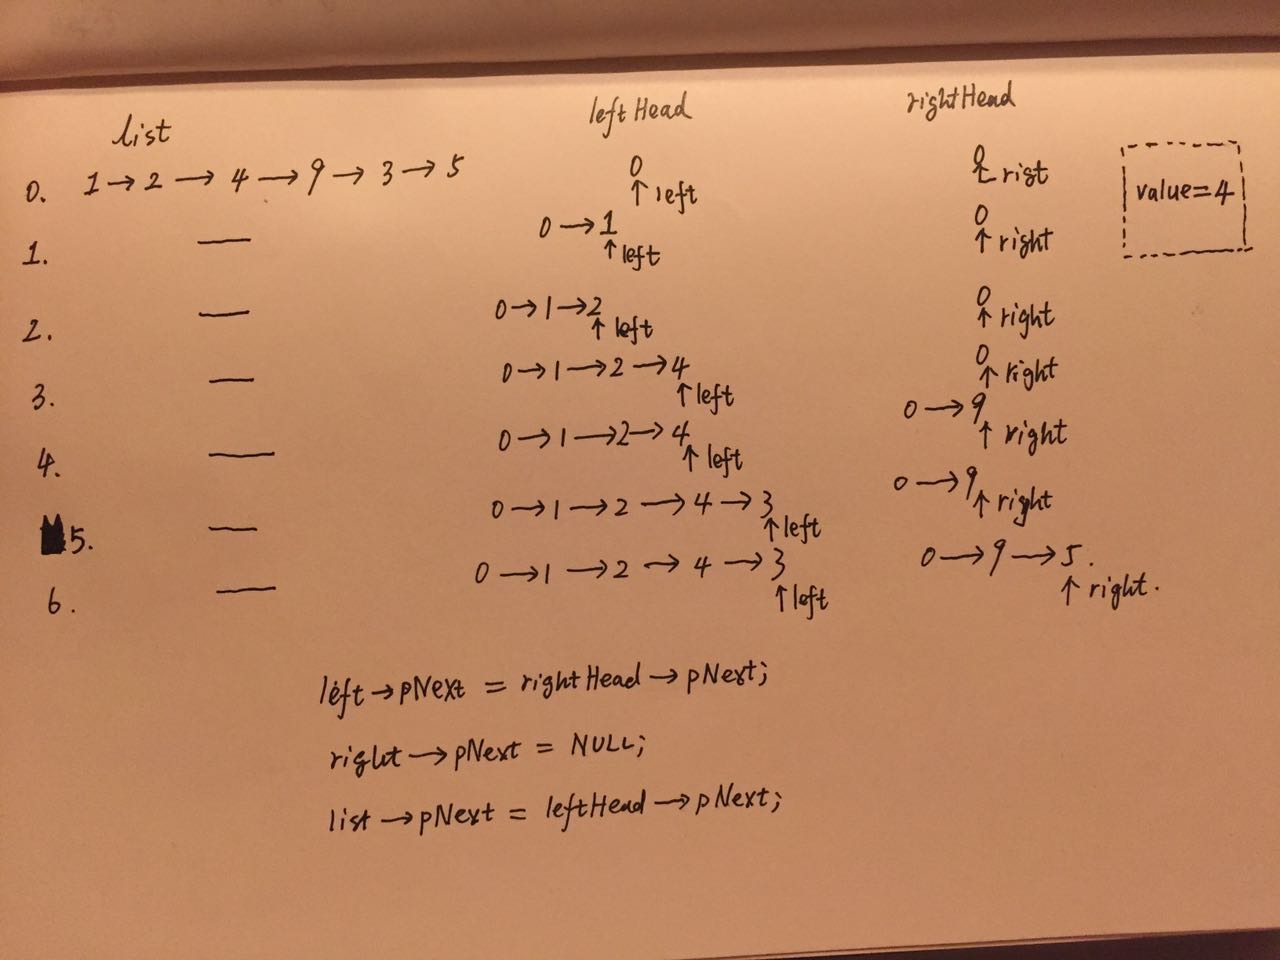 list leftHead rightHead
0. 1 → 2 → 4 → 9 → 3 → 5 0 0
↑ left rigt value=4
1. — 0 → 1 0
↑ left ↑ right
2. — 0 → 1 → 2 0
↑ left ↑ right
3. — 0 → 1 → 2 → 4 0
↑ left ↑ right
4. — 0 → 1 → 2 → 4 0 → 9
↑ left ↑ right
5. — 0 → 1 → 2 → 4 → 3 0 → 9
↑ left ↑ right
6. — 0 → 1 → 2 → 4 → 3 0 → 9 → 5.
↑ left ↑ right.
left → pNext = rightHead → pNext;
right → pNext = NULL;
list → pNext = leftHead → pNext;